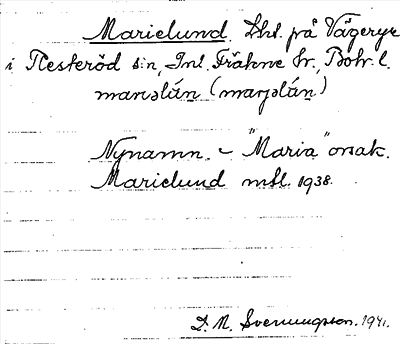 Marielund. Lht. på Vägeryr
i Resteröd s:n, Inl. Fräkne hr., Boh. l.
marıəlún̠ (marjəlún̠)
Nynamn. – "Maria" orsak.
Marielund msl. 1938.
D. N. Svenungsson. 1941.